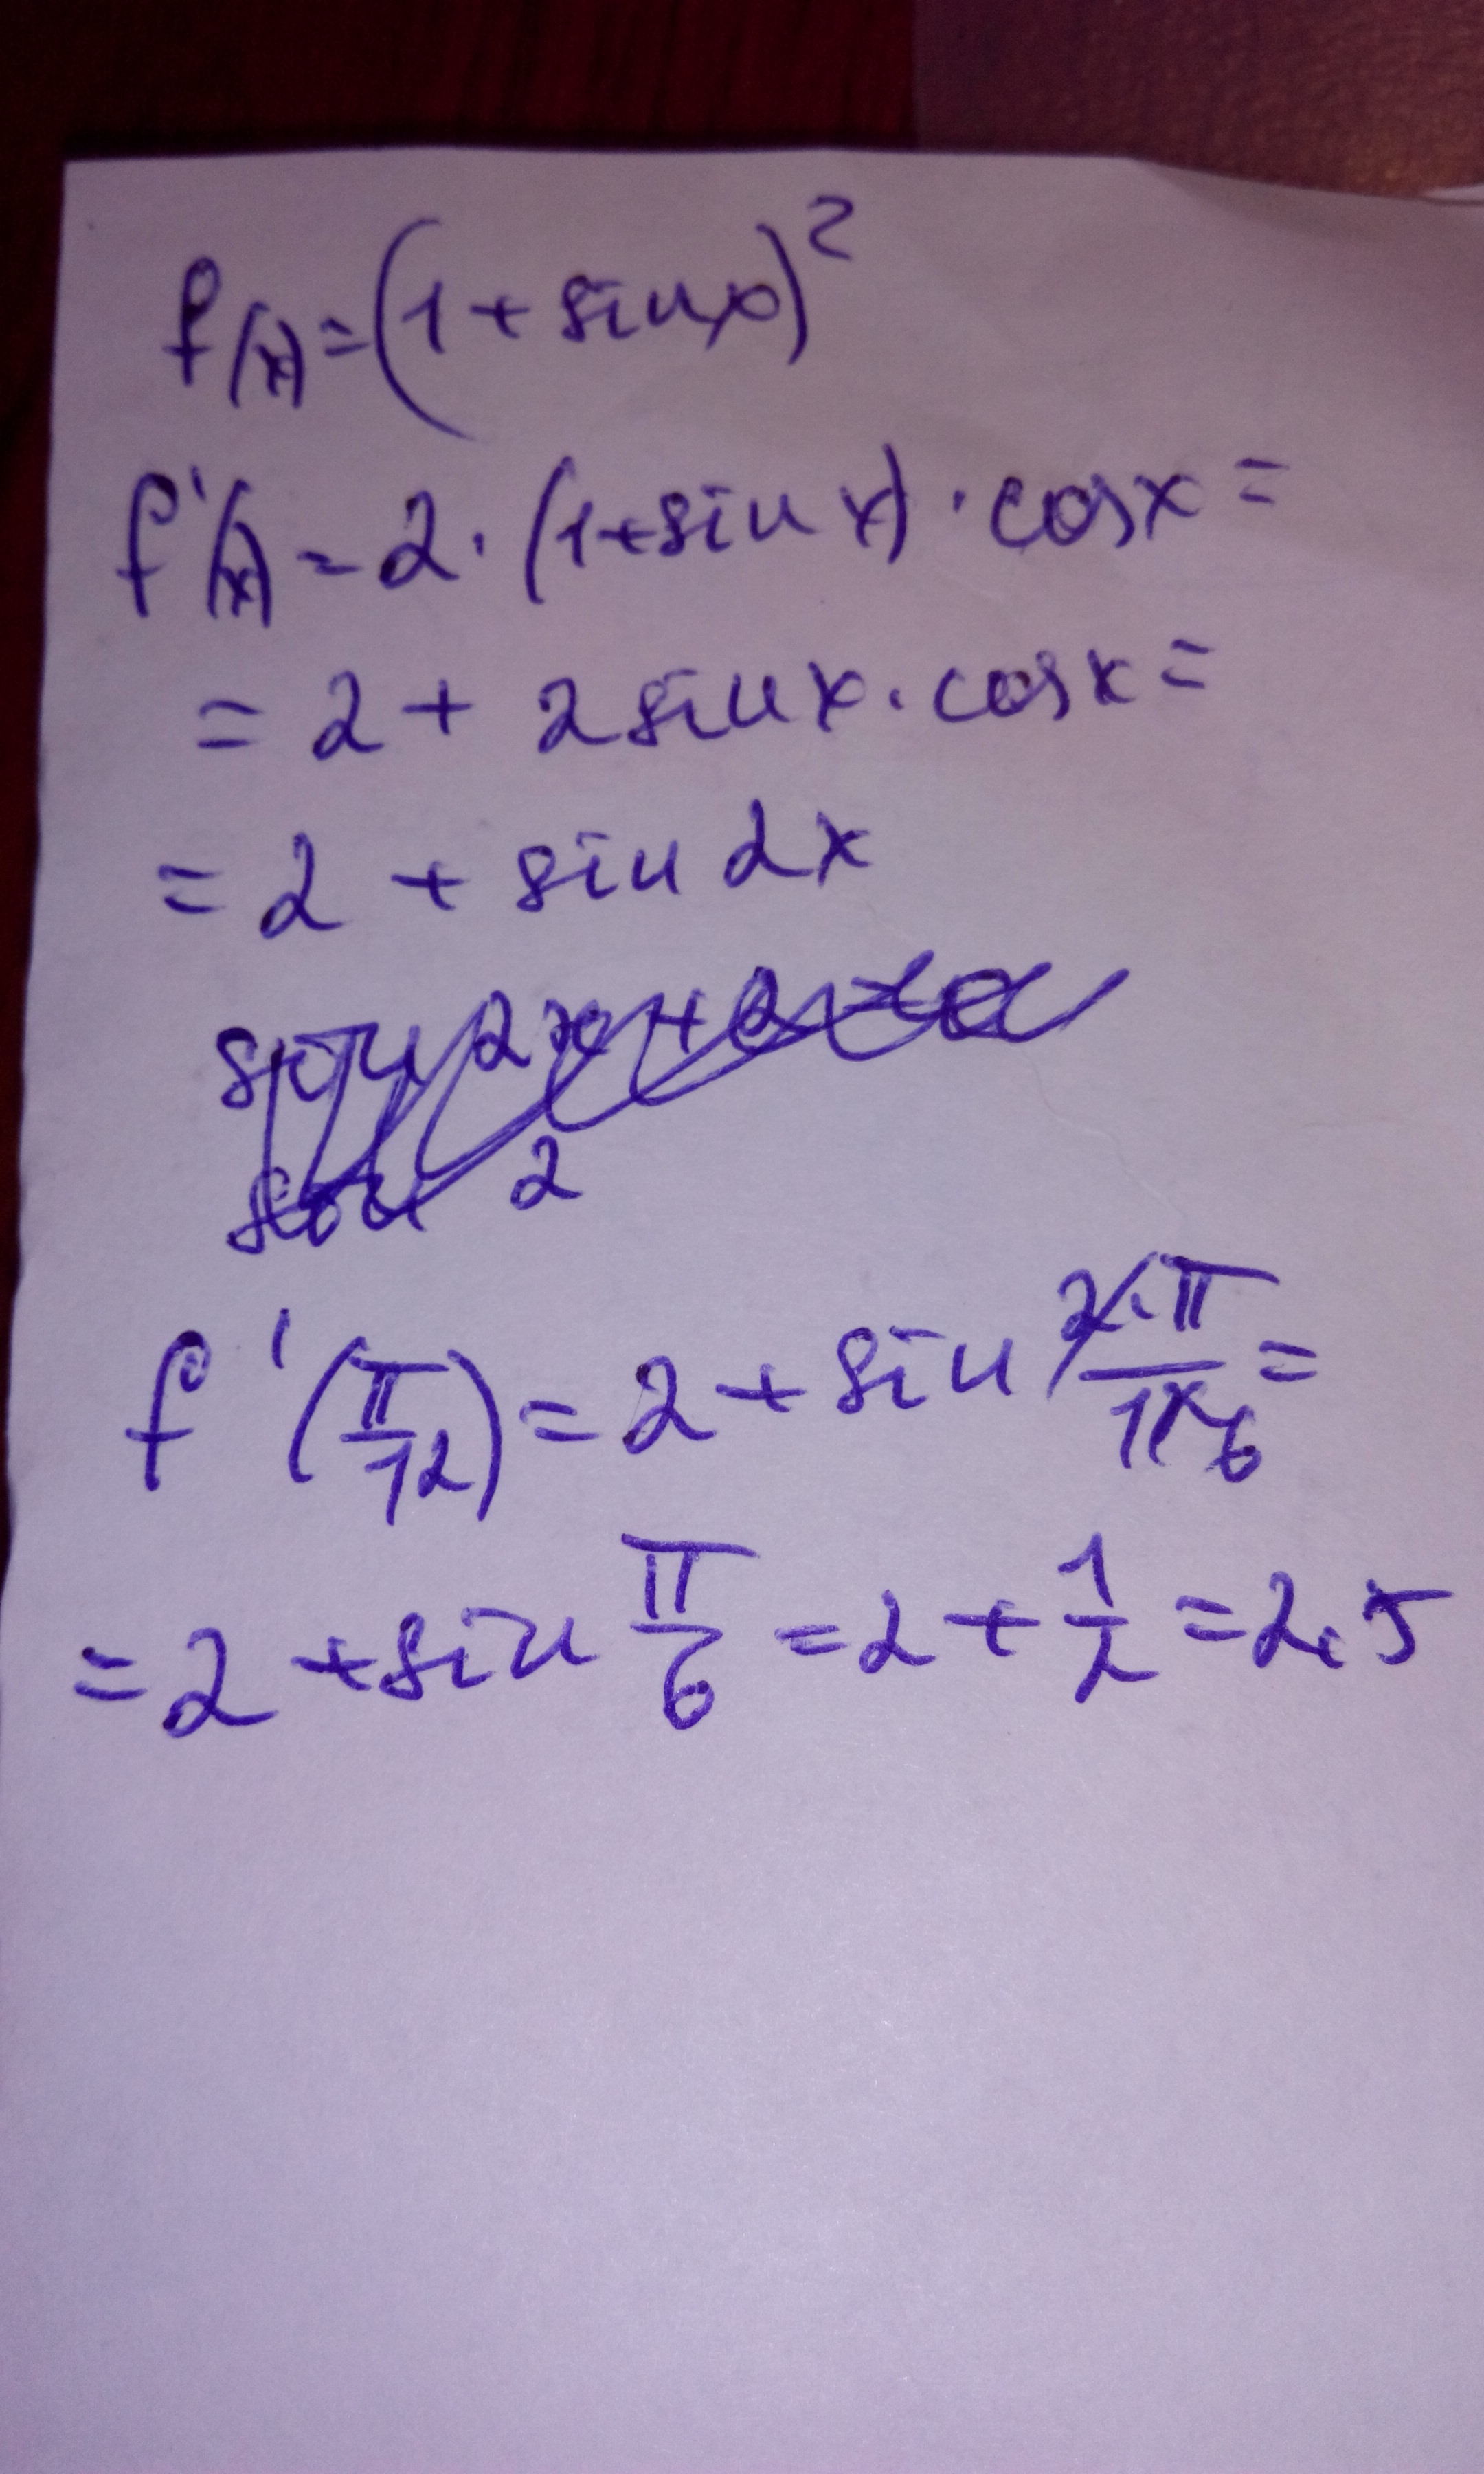 f(x)=(1+sinx)²
f'(x)=2·(1+sin x)·cosx=
=2+2sinx·cosx=
=2+sin2x
sin 2x+2
2
f'(π/12)=2+sin 2·π/12 6=
=2+sin π/6=2+1/2=2,5